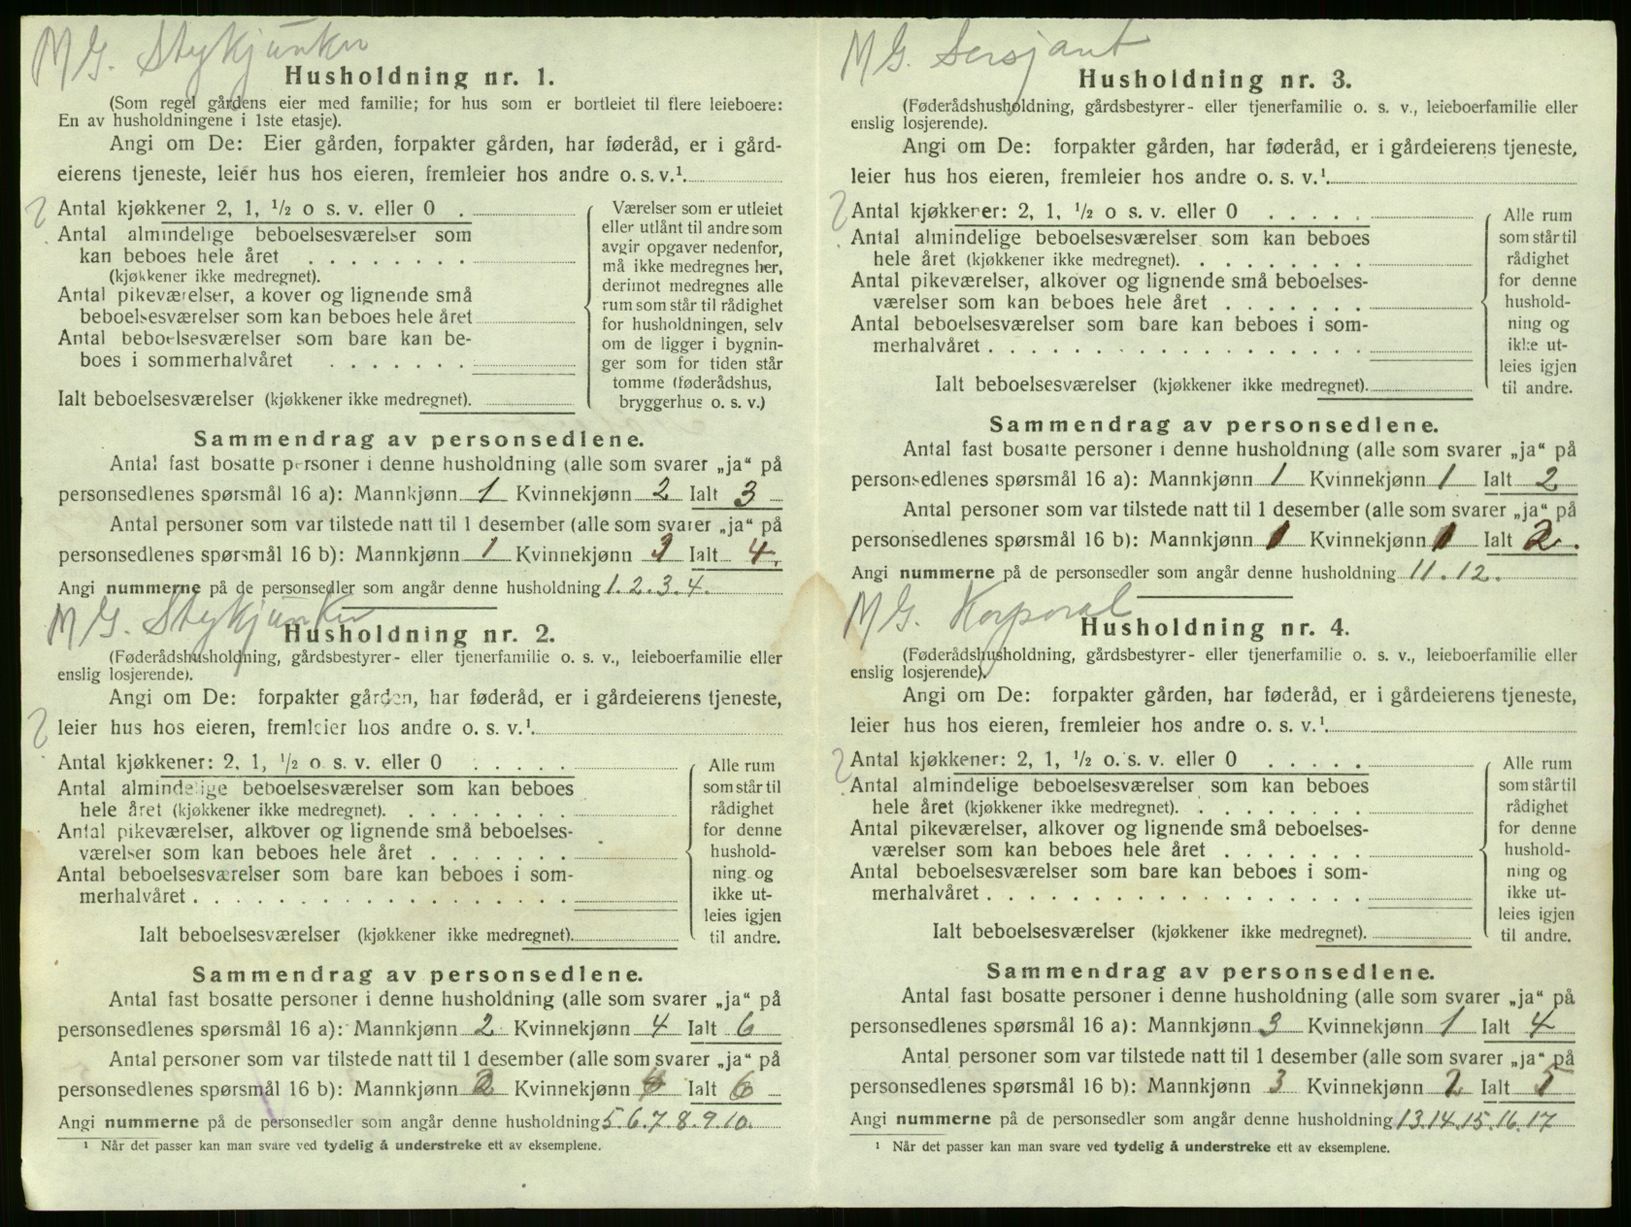 MG. Stykjunker
Husholdning nr. 1.
(Som regel gårdens eier med familie; for hus som er bortleiet til flere leieboere:
En av husholdningene i 1ste etasje).
Angi om De: Eier gården, forpakter gården, har føderåd, er i gård-
eierens tjeneste, leier hus hos eieren, fremleier hos andre o. s. v.¹.
? Antal kjøkkener 2, 1, ½ o s. v. eller 0 .
Antal almindelige beboelsesværelser som
kan beboes hele året . . . . . . . .
(kjøkkener ikke medregnet).
Antal pikeværelser, a kover og lignende små
beboelsesværelser som kan beboes hele året
Antal beboelsesværelser som bare kan be-
boes i sommerhalvåret . . . . . . .
Ialt beboelsesværelser (kjøkkener ikke medregnet).
Værelser som er utleiet
eller utlånt til andre som
avgir opgaver nedenfor,
må ikke medregnes her,
derimot medregnes alle
rum som står til rådighet
for husholdningen, selv
om de ligger i bygnin-
ger som for tiden står
tomme (føderådshus,
bryggerhus o. s. v.)
Sammendrag av personsedlene.
Antal fast bosatte personer i denne husholdning (alle som svarer „ja“ på
personsedlenes spørsmål 16 a): Mannkjønn 1 Kvinnekjønn 2 Ialt 3
Antal personer som var tilstede natt til 1 desember (alle som svarer „ja“ på
personsedlenes spørsmål 16 b): Mannkjønn 1 Kvinnekjønn 3 Ialt 4.
Angi nummerne på de personsedler som angår denne husholdning 1. 2. 3. 4.
MG. Stykjunker
Husholdning nr. 2.
(Føderådshusholdning, gårdsbestyrer- eller tjenerfamilie o. s. v., leieboerfamilie eller
enslig losjerende).
Angi om De: forpakter gården, har føderåd, er i gårdeierens tjeneste,
? leier hus hos eieren, fremleier hos andre o. s. v.¹.
Antal kjøkkener: 2, 1, ½ o s. v. eller 0 . . . . .
Antal almindelige beboelsesværelser som kan beboes
hele året (kjøkkener ikke medregnet). . . . . . . . .
Antal pikeværelser, alkover og lignende små beboelses-
værelser som kan beboes hele året . . . . . . .
Antal beboelsesværelser som bare kan beboes i som-
merhalvåret . . . . . . . . . . . . . . . . .
Ialt beboelsesværelser (kjøkkener ikke medregnet).
Alle rum
som står til
rådighet
for denne
hushold-
ning og
ikke ut-
leies igjen
til andre.
Sammendrag av personsedlene.
Antal fast bosatte personer i denne husholdning (alle som svarer „ja“ på
personsedlenes spørsmål 16 a): Mannkjønn 2 Kvinnekjønn 4 Ialt 6
Antal personer som var tilstede natt til 1 desember (alle som svarer „ja“ på
personsedlenes spørsmål 16 b): Mannkjønn 2 Kvinnekjønn 4 Ialt 6
Angi nummerne på de personsedler som angår denne husholdning 5. 6. 7. 8. 9. 10.
¹ Når det passer kan man svare ved tydelig å understreke ett av eksemplene.
MG. Sersjant
Husholdning nr. 3.
(Føderådshusholdning, gårdsbestyrer- eller tjenerfamilie o. s. v., leieboerfamilie eller
enslig losjerende).
Angi om De: forpakter gården, har føderåd, er i gårdeierens tjeneste,
leier hus hos eieren, fremleier hos andre o. s. v.¹.
? Antal kjøkkener: 2, 1, ½ o s. v. eller 0 . . . . .
Antal almindelige beboelsesværelser som kan beboes
hele året (kjøkkener ikke medregnet). . . . . . . . .
Antal pikeværelser, alkover og lignende små beboelses-
værelser som kan beboes hele året . . . . . . .
Antal beboelsesværelser som bare kan beboes i som-
merhalvåret . . . . . . . . . . . . . . . . .
Ialt beboelsesværelser (kjøkkener ikke medregnet).
Alle rum
som står til
rådighet
for denne
hushold-
ning og
ikke ut-
leies igjen
til andre.
Sammendrag av personsedlene.
Antal fast bosatte personer i denne husholdning (alle som svarer „ja“ på
personsedlenes spørsmål 16 a): Mannkjønn 1 Kvinnekjønn 1 Ialt 2
Antal personer som var tilstede natt til 1 desember (alle som svarer „ja“ på
personsedlenes spørsmål 16 b): Mannkjønn 1 Kvinnekjønn 1 Ialt 2.
Angi nummerne på de personsedler som angår denne husholdning 11. 12.
MG. Korporal
Husholdning nr. 4.
(Føderådshusholdning, gårdsbestyrer- eller tjenerfamilie o. s. v., leieboerfamilie eller
enslig losjerende).
Angi om De: forpakter gården, har føderåd, er i gårdeierens tjeneste,
leier hus hos eieren, fremleier hos andre o. s. v.¹.
? Antal kjøkkener: 2, 1, ½ o. s. v. eller 0 . . . . .
Antal almindelige beboelsesværelser som kan beboes
hele året (kjøkkener ikke medregnet). . . . . . . . .
Antal pikeværelser, alkover og lignende små beboelses-
værelser som kan beboes hele året . . . . . . .
Antal beboelsesværelser som bare kan beboes i som-
merhalvåret . . . . . . . . . . . . . . . . .
Ialt beboelsesværelser (kjøkkener ikke medregnet).
Alle rum
som står til
rådighet
for denne
hushold-
ning og
ikke ut-
leies igjen
til andre.
Sammendrag av personsedlene.
Antal fast bosatte personer i denne husholdning (alle som svarer „ja“ på
personsedlenes spørsmål 16 a): Mannkjønn 3 Kvinnekjønn 1 Ialt 4
Antal personer som var tilstede natt til 1 desember (alle som svarer „ja“ på
personsedlenes spørsmål 16 b): Mannkjønn 3 Kvinnekjønn 2 Ialt 5
Angi nummerne på de personsedler som angår denne husholdning 13. 14. 15. 16. 17
¹ Når det passer kan man svare ved tydelig å understreke ett av eksemplene.